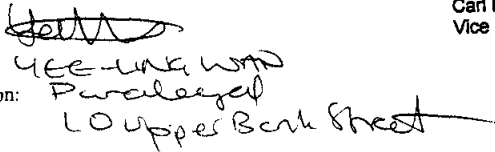 Carl
Vice
YEE-LING WAN
on: Paralegal
10 Upper Bank Street